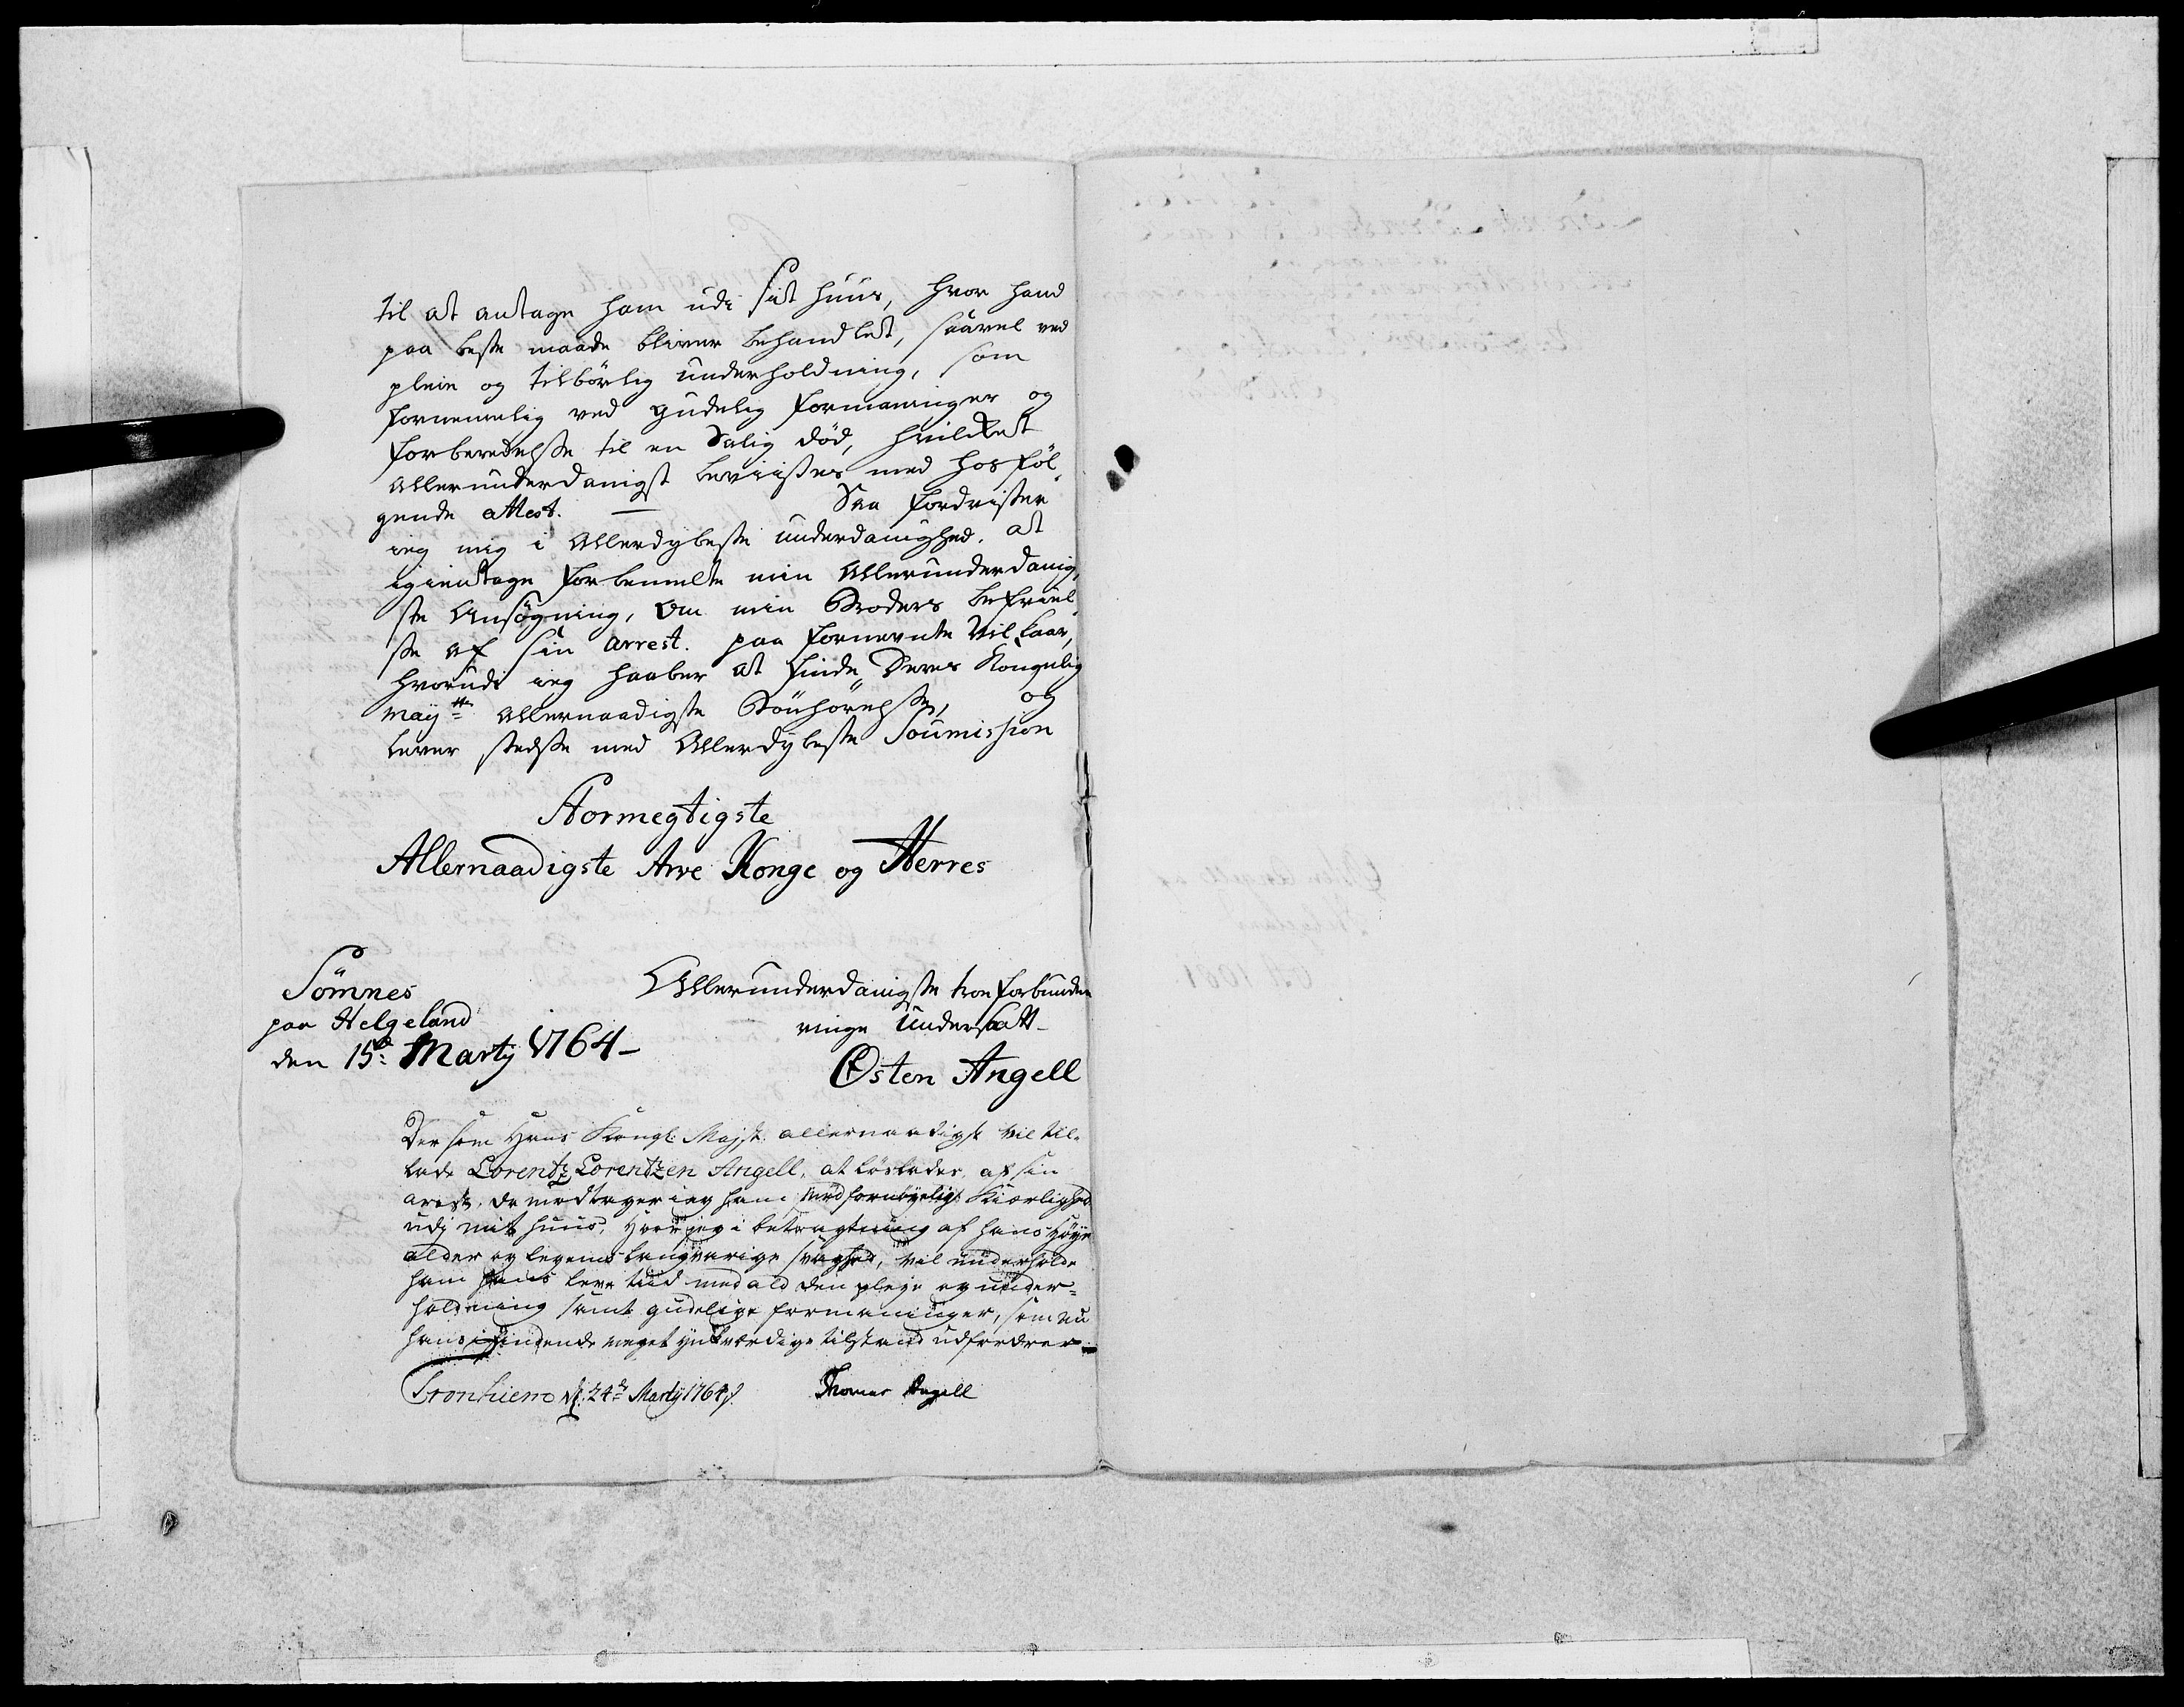 til at antage ham udi sit huus, hvor hand
paa beste maade bliver behandlet, saavel ved
pleie og tilbörlig underholdning, som
fornemmelig ved gudelig formaninger og
forberedelsse til en Salig död, hvilcket
allerunderdanigst beviisses med hosföl„
gende attest. — Saa fordrister
ieg mig i Allerdybeste underdanighed, at
igientage forbemelte min Allerunderdanig„
ste Ansögning, om min Broders befriel„
sse af sin arrest. paa fornevnte Vilkaar,
hvorudi ieg haaber at finde Deres Kongelig
Mayttes allernaadigste Bönhörelsse, og
lever stedsse med Allerdybeste Soumission
Stormegtigste
Allernaadigste Arve Konge og Herres
Sömnes
paa Helgeland
den 15de Martij 1764-
Allerunderdanigste troe forbunden
ringe Undersaatt-
Østen Angell
Der som Hans Kongl: Majst: allernaadigst vil til„
lade Lorentz Lorentzen Angell, at löslades, af sin
arest, da modtager ieg ham med fornöyeligst Kiærlighed
udj mit huus, Hvor jeg i betragtning af hans Höye
alder og legems langvarige svaghed, vil underholde
ham hans leve tiid med ald den pleje og under=
holdning samt gudelige formaninger, som nu
hans havende meget ynkværdige tilstand udfordrer
Tronhiem d. 24de Martij 1764.
Thomas Angell